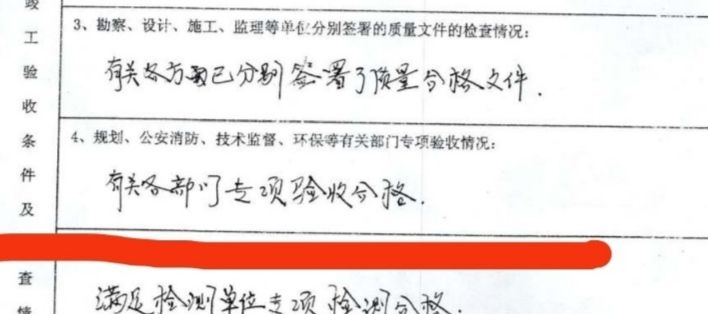 竣工验收条件及
查
3、勘察、设计、施工、监理等单位分别签署的质量文件的检查情况：
有关各方面已分别签署了质量合格文件．
4、规划、公安消防、技术监督、环保等有关部门专项验收情况：
有关各部门专项验收合格．
满足检测单位专项检测合格．